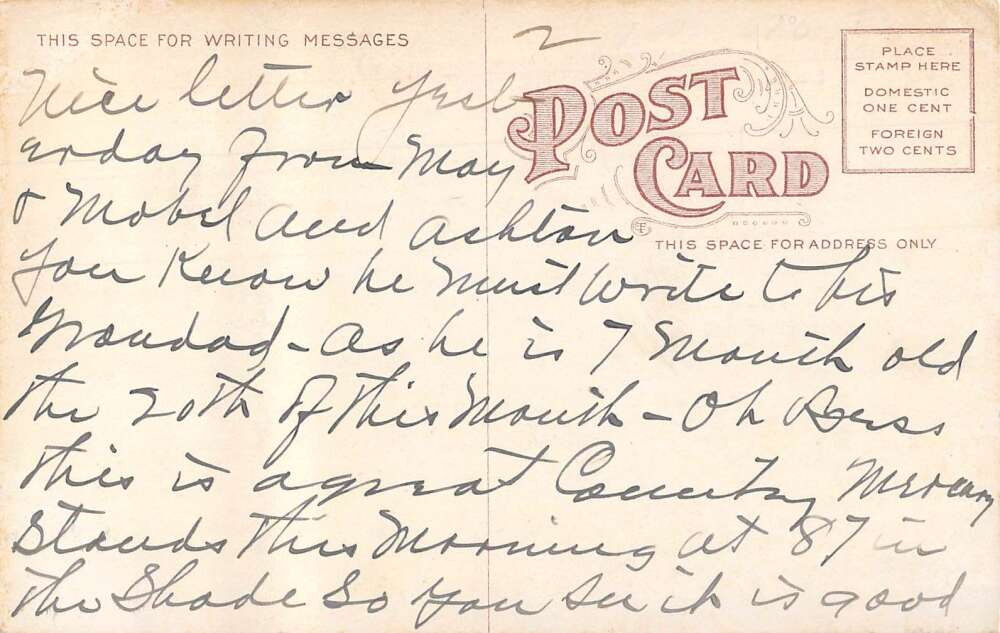 THIS SPACE FOR WRITING MESSAGES
2
POST
CARD
PLACE
STAMP HERE
DOMESTIC
ONE CENT
FOREIGN
TWO CENTS
THIS SPACE FOR ADDRESS ONLY
Nice letter yest
erday from May
& Mabel and Ashton
you Know he must write to his
Grandad - As he is 7 Month old
the 20th of this Month - Oh Bess
this is a great Country Mercury
Stands this Morning at 87 in
the Shade So you see it is good